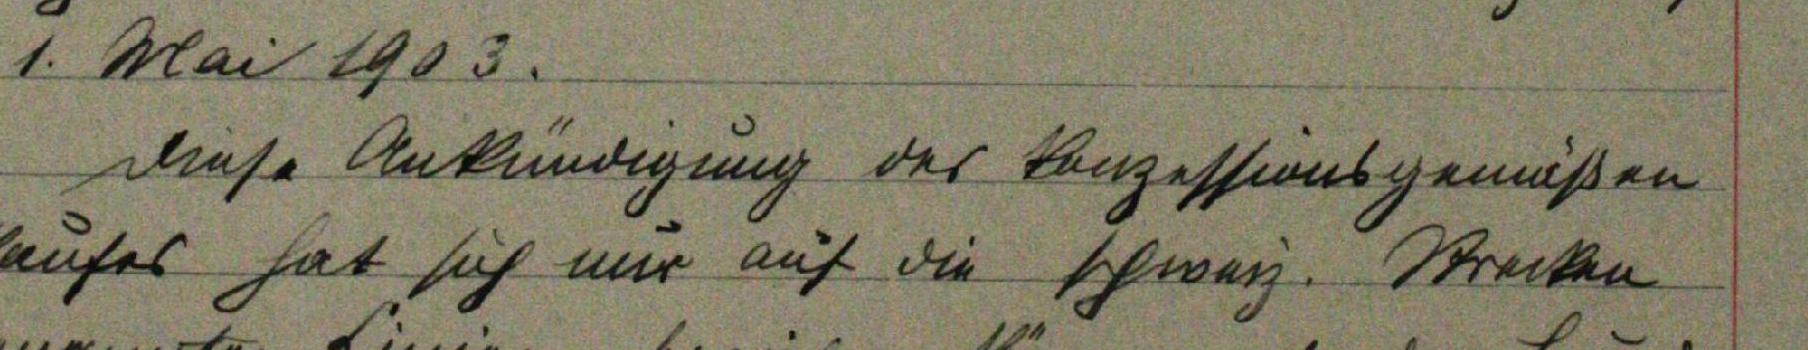 1. Mai 1903.
Diese Ankündigung des konzessionsgemäßen
kaufes hat sich nur auf die schweiz. Strecken
Linien